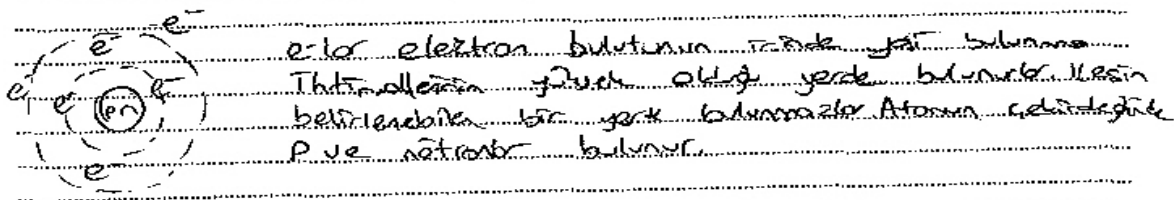 e⁻ e⁻ e⁻ e⁻ e⁻ pn e⁻
e-lar elektron bulutunun içinde yani bulunma
İhtimallerinin yüksek olduğu yerde bulunurlar. Kesin
belirlenebilen bir yerde bulunmazlar Atomun çekirdeğinde
P ve nötronlar bulunur.